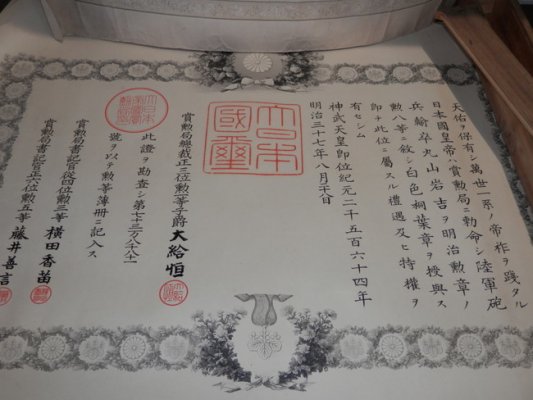 天佑ヲ保有シ萬世一系ノ帝祚ヲ踐タル
日本國皇帝ハ賞勲局ニ勅命シ陸軍砲
兵輸卒丸山岩吉ヲ明治勲章ノ
勲八等ニ敘シ白色桐葉章ヲ授與ス
即チ此位ニ屬スル禮遇及ヒ特權ヲ
有セシム
神武天皇即位紀元二千五百六十四年
明治三十七年八月十六日
大日本國璽
賞勲局總裁正三位勲一等子爵大給恒
此證ヲ勘査シ第七十三万八千八十二
號ヲ以テ勲等簿册ニ記入ス
賞勲局書記官従四位勲三等横田香苗
賞勲局書記官正六位勲五等藤井善言